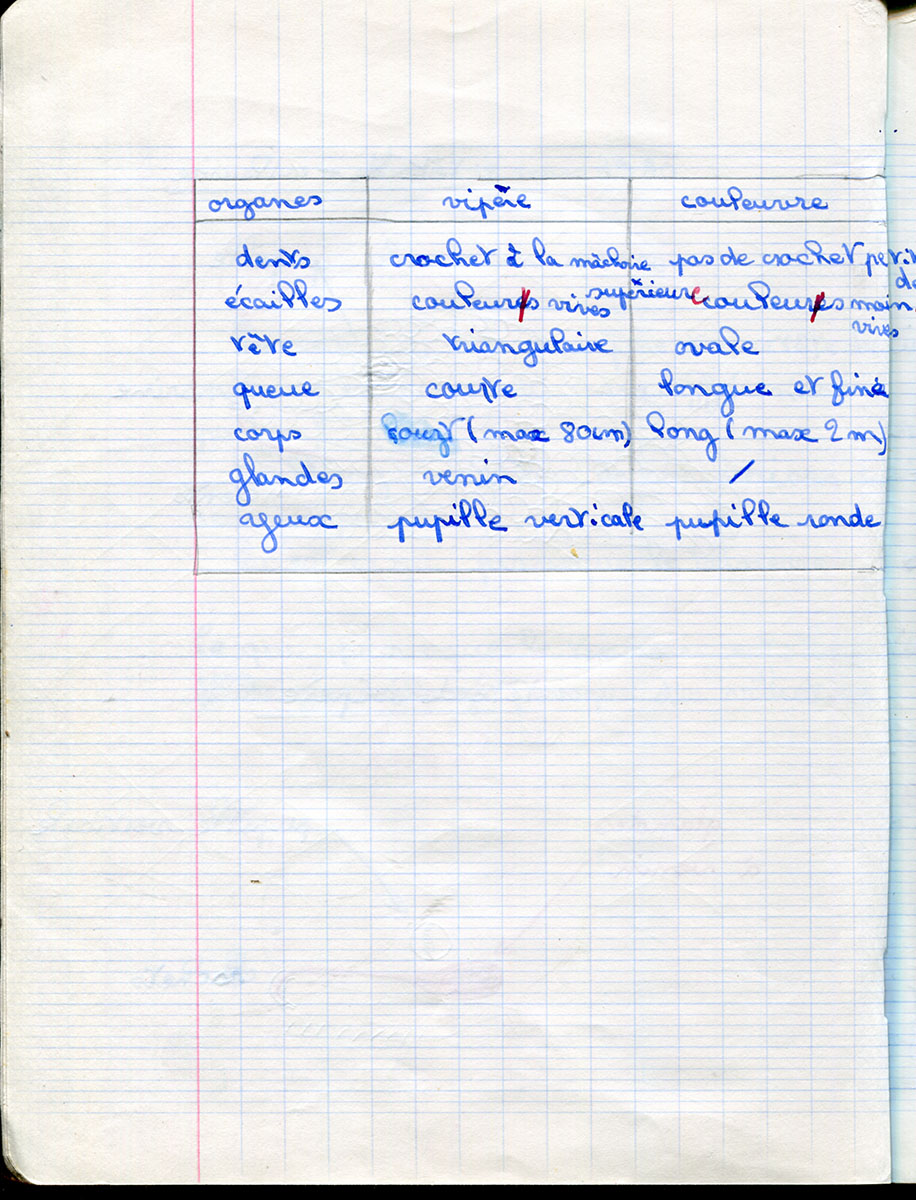 organes vipère couleuvre
dents crochet à la mâchoire pas de crochet petit
supérieure de
écailles couleures vives couleures moin
vives
tête triangulaire ovale
queue courte longue et fine
corps court (max 80cm) long (max 2m)
glandes venin /
yeux pupille verticale pupille ronde